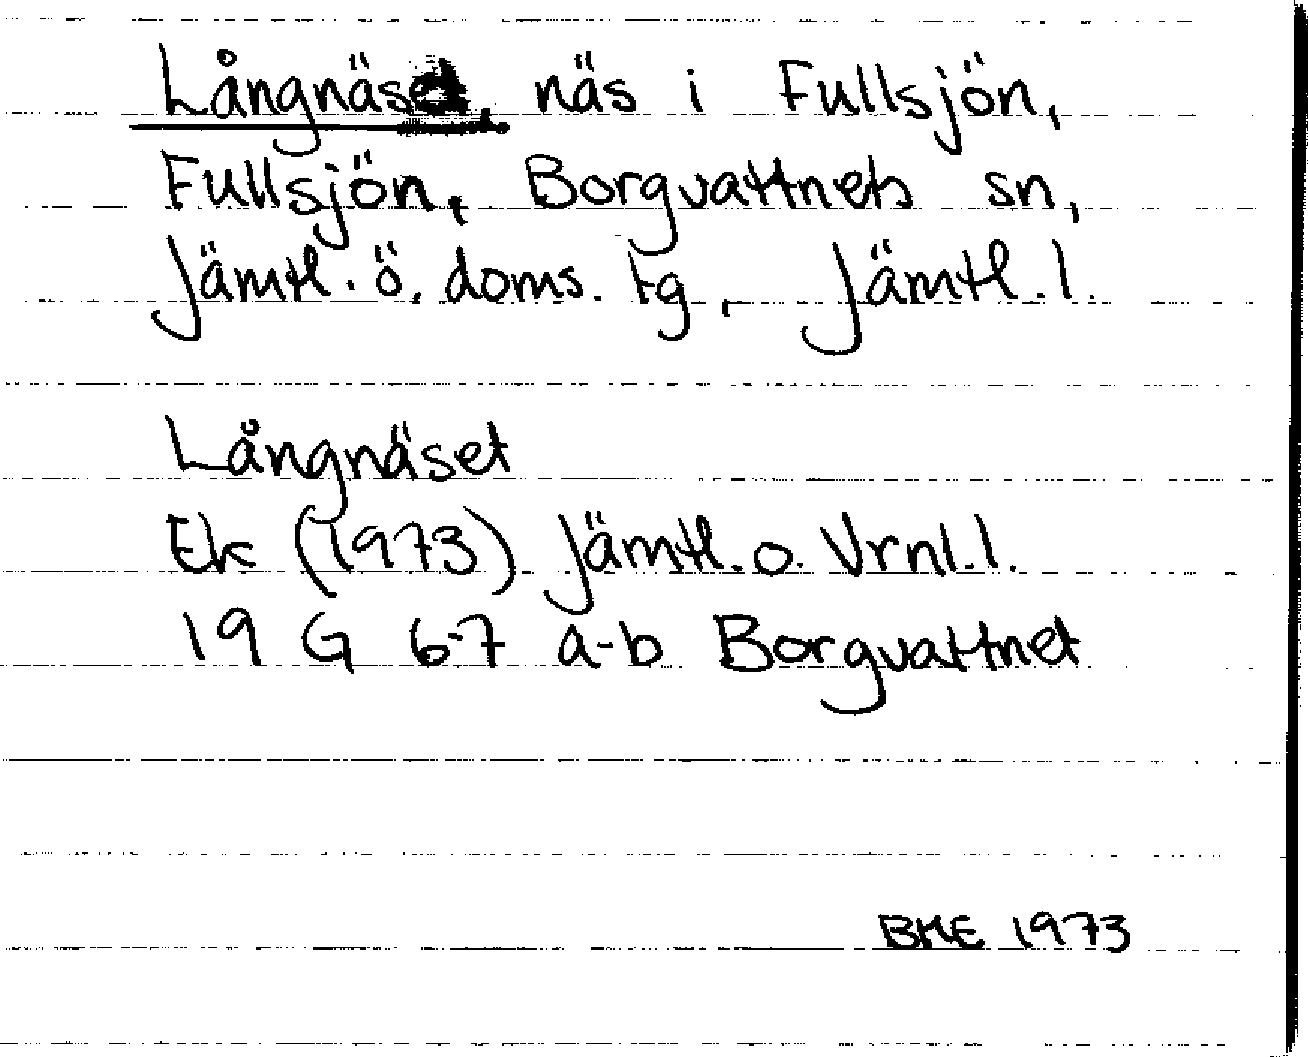 Långnäset, näs i Fullsjön,
Fullsjön, Borgvattnets sn,
Jämtl. ö. doms. tg, Jämtl. l.
Långnäset
Ek (1973) Jämtl. o. Vrnl. l.
19 G 6-7 a-b Borgvattnet
BKE 1973